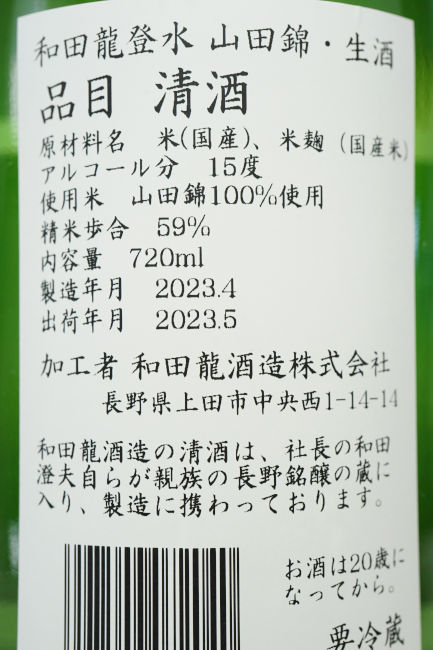 和田龍登水 山田錦・生酒
品目 清酒
原材料名 米(国産)、米麹(国産米)
アルコール分 15度
使用米 山田錦100%使用
精米歩合 59%
内容量 720ml
製造年月 2023.4
出荷年月 2023.5
加工者 和田龍酒造株式会社
長野県上田市中央西1-14-14
和田龍酒造の清酒は、社長の和田
澄夫自らが親族の長野銘醸の蔵に
入り、製造に携わっております。
お酒は20歳に
なってから。
要冷蔵